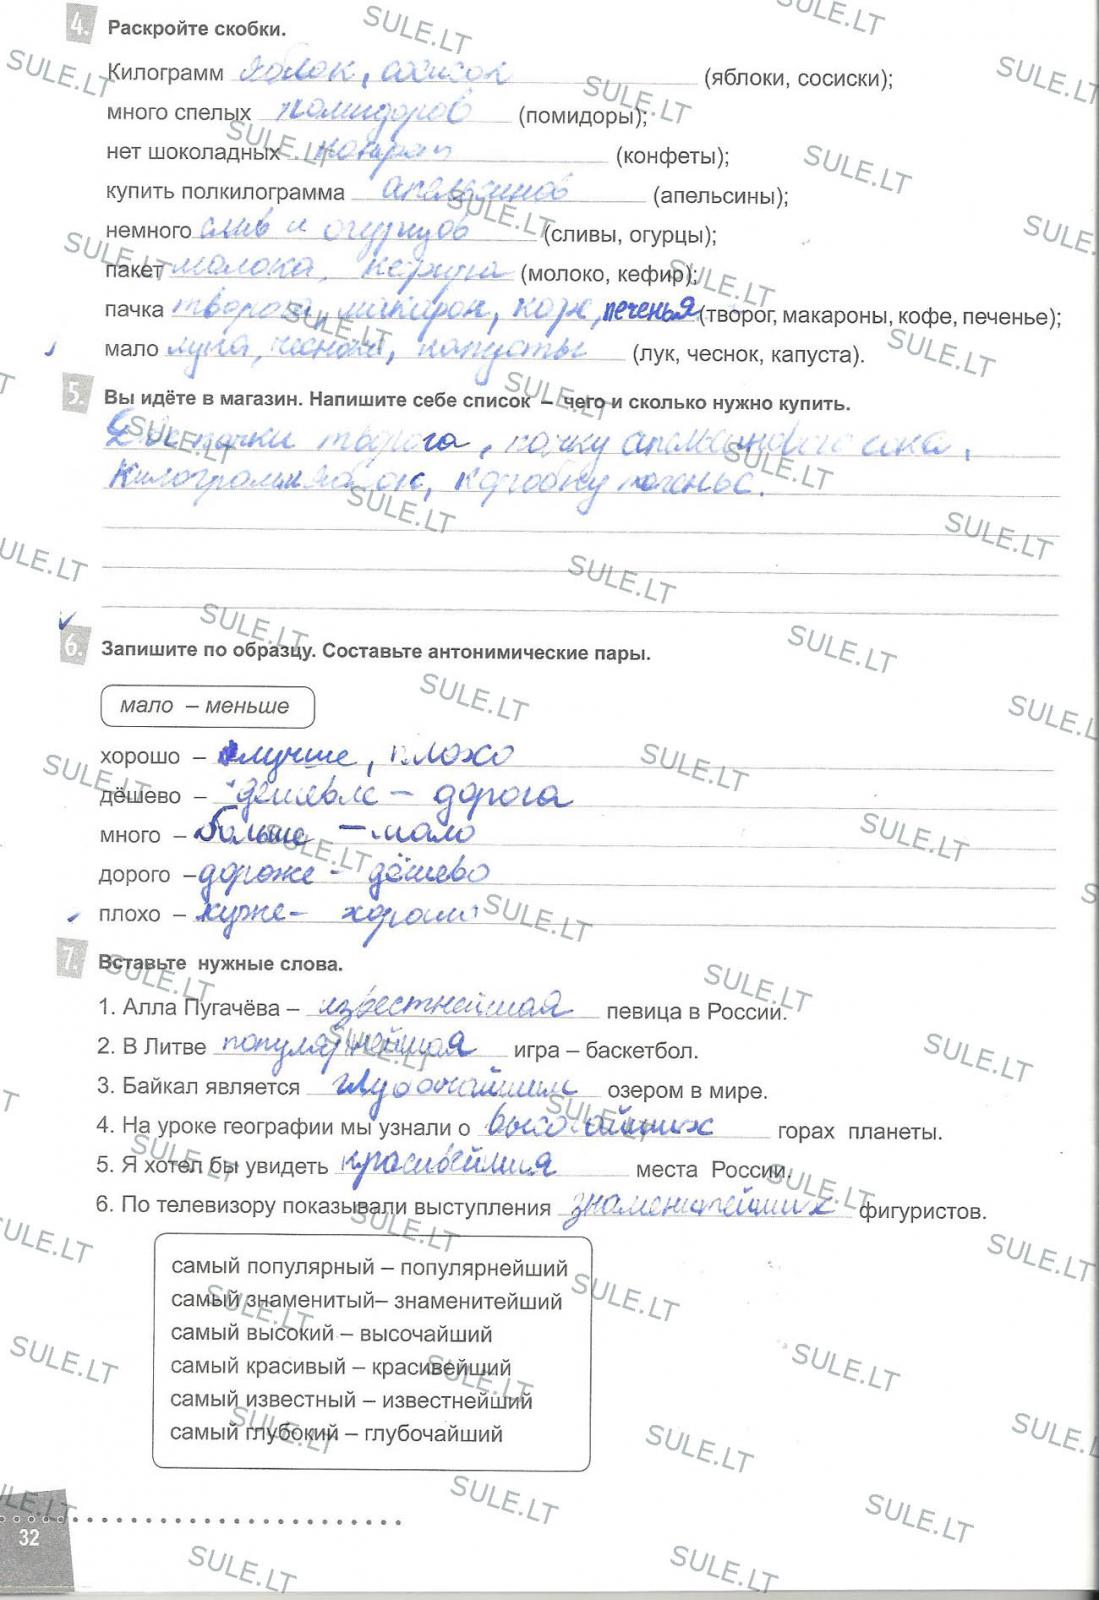 4. Раскройте скобки.
Килограмм яблок, сосисок (яблоки, сосиски);
много спелых помидоров (помидоры);
нет шоколадных (конфеты);
купить полкилограмма апельсинов (апельсины);
немного слив и огурцов (сливы, огурцы);
пакет молока, кефира (молоко, кефир);
пачка творога, макарон, кофе, печенья (творог, макароны, кофе, печенье);
мало лука, чеснока, капусты (лук, чеснок, капуста).
5. Вы идёте в магазин. Напишите себе список – чего и сколько нужно купить.
Две пачки творога, пачку апельсинового сока,
килограмм яблок, коробку
6. Запишите по образцу. Составьте антонимические пары.
мало – меньше
хорошо – лучше, плохо
дёшево – дешевле – дорога
много – больше – мало
дорого – дороже – дёшево
плохо – хуже –
7. Вставьте нужные слова.
1. Алла Пугачёва – известнейшая певица в России.
2. В Литве популярнейшая игра – баскетбол.
3. Байкал является глубочайшим озером в мире.
4. На уроке географии мы узнали о высочайших горах планеты.
5. Я хотел бы увидеть красивейшия места России.
6. По телевизору показывали выступления знаменитейших фигуристов.
самый популярный – популярнейший
самый знаменитый– знаменитейший
самый высокий – высочайший
самый красивый – красивейший
самый известный – известнейший
самый глубокий – глубочайший
32
SULE.LT